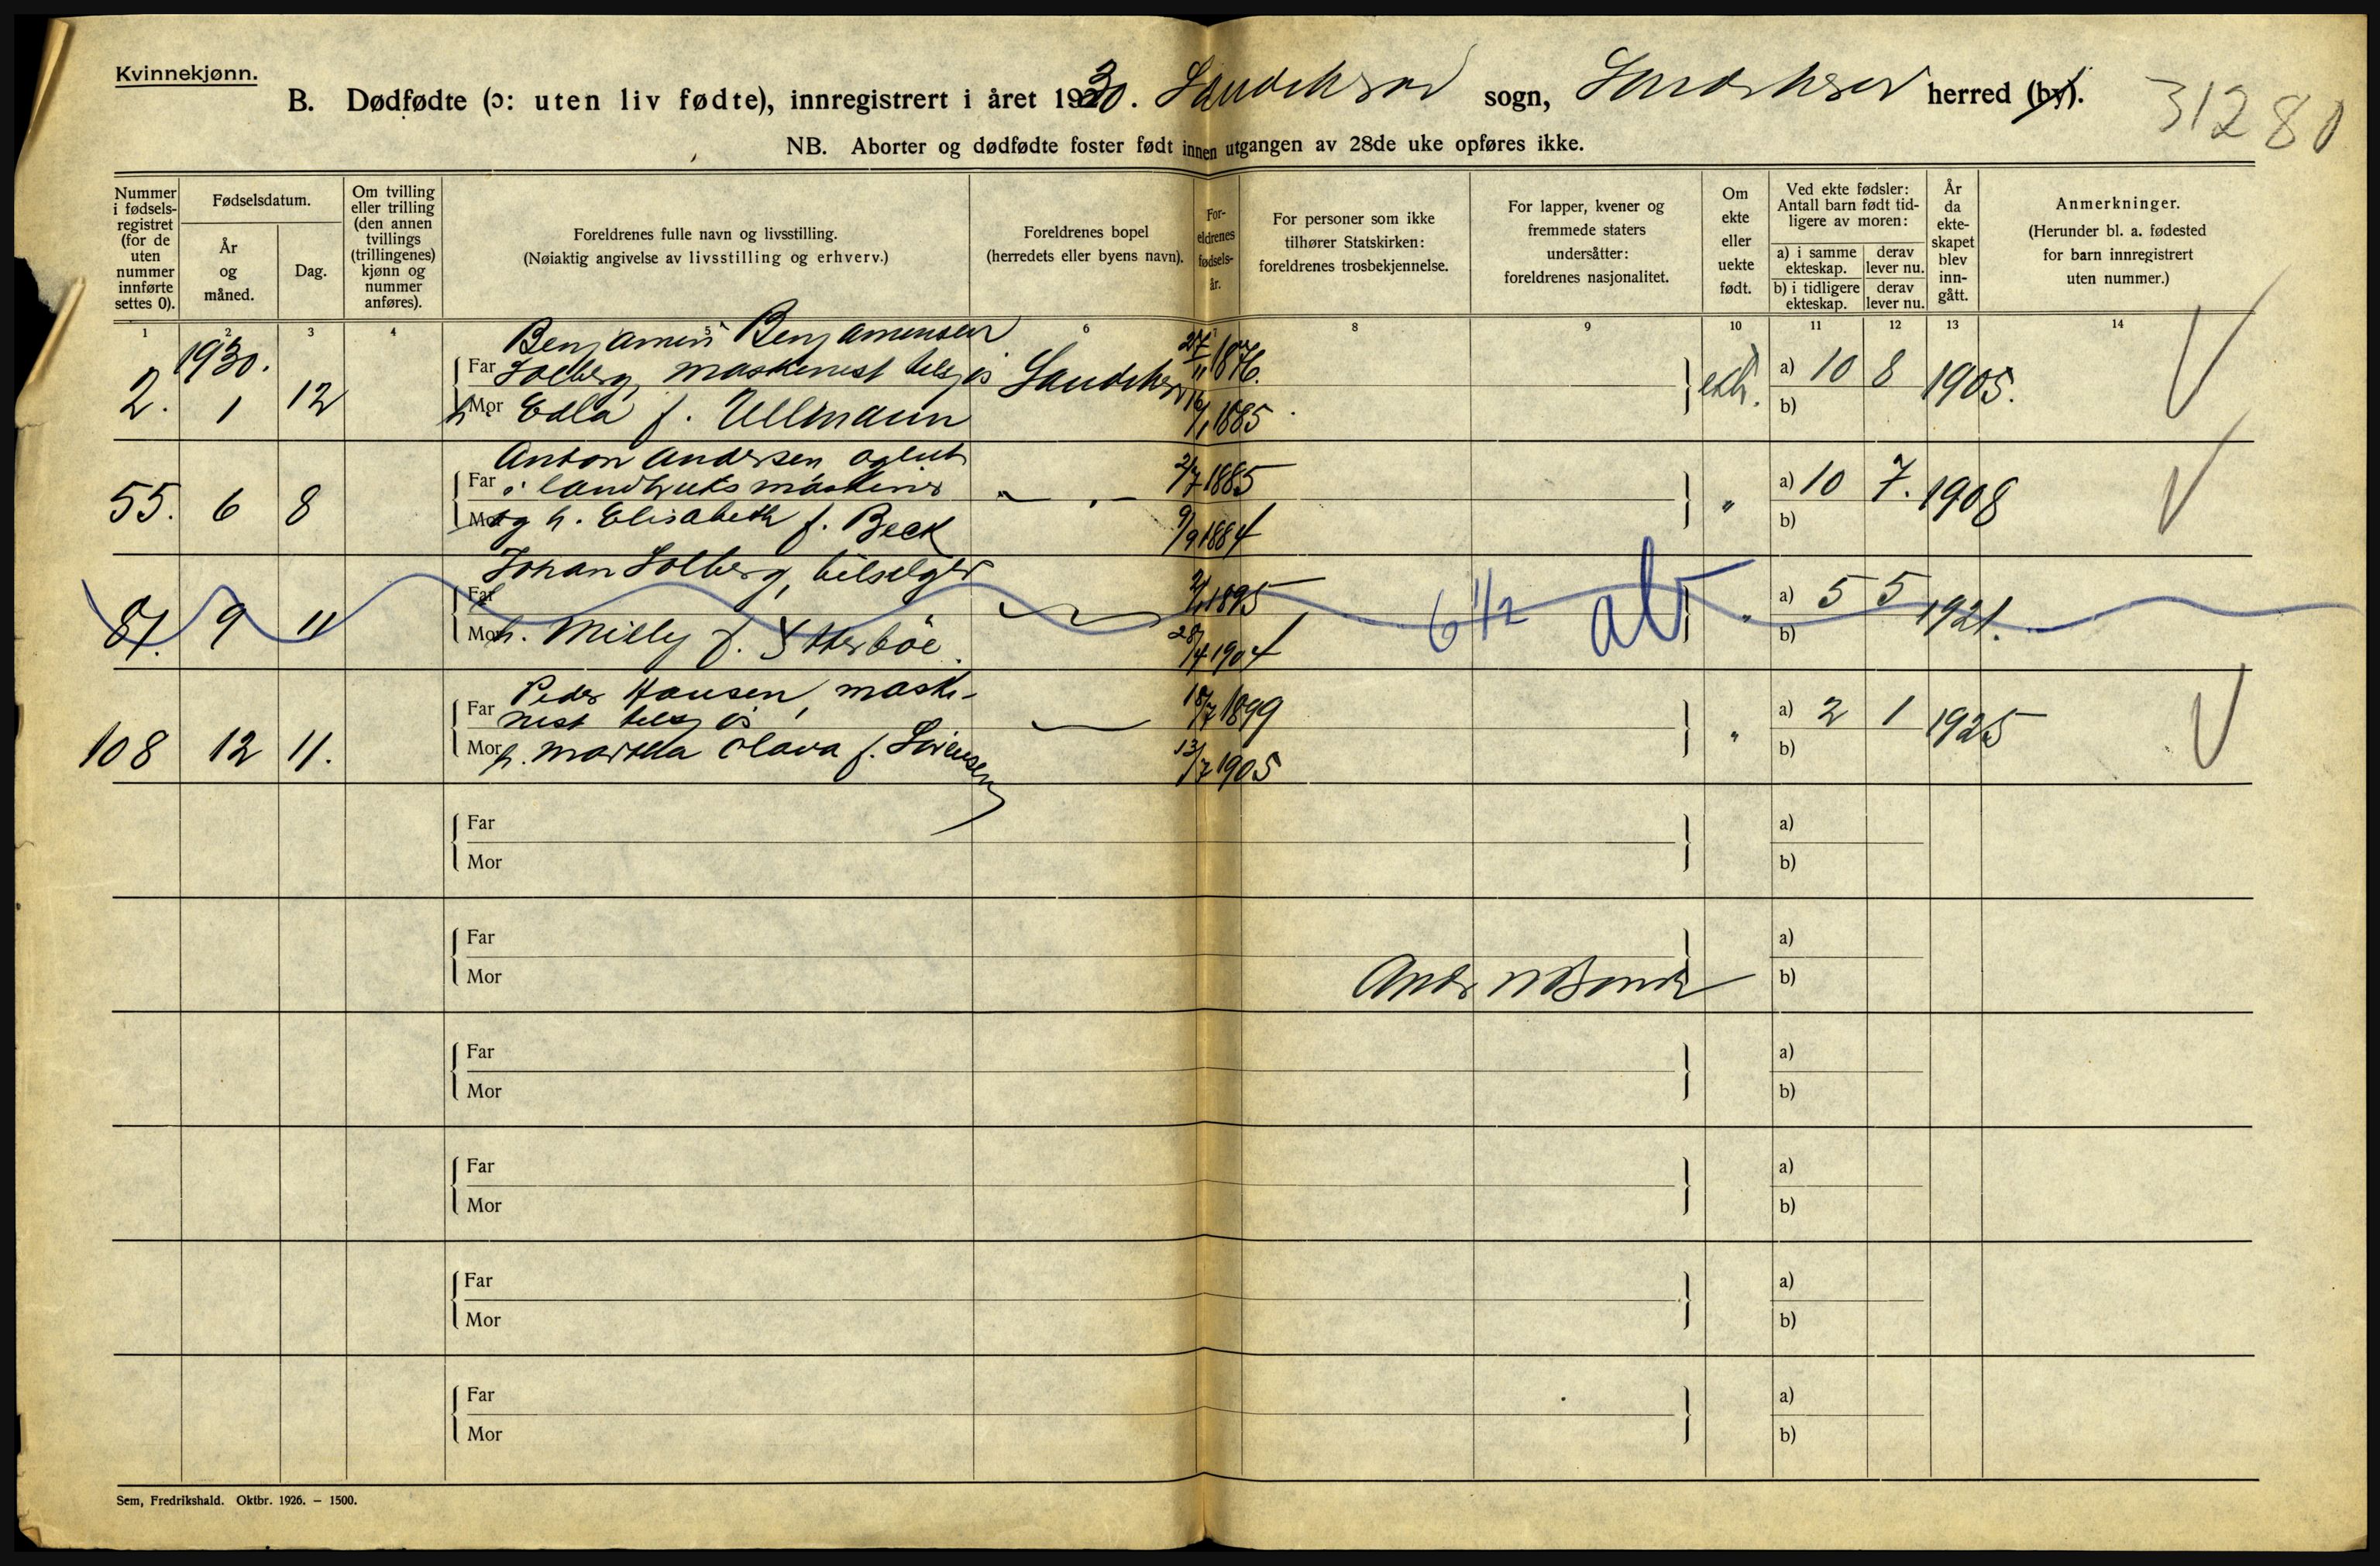 Kvinnekjønn.
B. Dødfødte (ɔ: uten liv fødte), innregistrert i året 1930. Sandeherad sogn, Sandeherad herred (by).
31280
NB. Aborter og dødfødte foster født innen utgangen av 28de uke opføres ikke.
Nummer i fødsels-registret (for de uten nummer innførte settes 0).
Fødselsdatum.
År og måned.
Dag.
Om tvilling eller trilling (den annen tvillings (trillingenes) kjønn og nummer anføres).
Foreldrenes fulle navn og livsstilling.
(Nøiaktig angivelse av livsstilling og erhverv.)
Foreldrenes bopel
(herredets eller byens navn).
For-eldrenes fødsels-år.
For personer som ikke tilhører Statskirken: foreldrenes trosbekjennelse.
For lapper, kvener og fremmede staters undersåtter: foreldrenes nasjonalitet.
Om ekte eller uekte født.
Ved ekte fødsler: Antall barn født tid-ligere av moren:
a) i samme ekteskap. derav lever nu.
b) i tidligere ekteskap. derav lever nu.
År da ekte-skapet blev inn-gått.
Anmerkninger.
(Herunder bl. a. fødested for barn innregistrert uten nummer.)
1 2 3 4 5 6 7 8 9 10 11 12 13 14
1930.
Benjamin Benjaminsen
2. 1 12 Far Solberg, maskinist tilsjøs 27/11 1876. ekte. a) 10 8 1905.
Mor h. Edla f. Ullmann 16/1 1885 b)
Anton Andersen agent
55. 6 8 Far i landbruksmaskiner 2/7 1885 " a) 10 7. 1908
Mor og h. Elisabeth f. Beck 9/9 1884 b)
Johan Solberg, bilselger
87. 9 11 Far 1895 6 1/2 ab " a) 5 5 1921.
Mor h. Milly f. Ytterböe. 28/4 1904 b)
Peder Hansen, maski-
108 12 11. Far nist tilsjøs 18/7 1899 " a) 2 1 1925
Mor h. Martha Olava f. Sörensen 13/7 1905 b)
Far a)
Mor b)
Far a)
Mor b)
Far a)
Mor b)
Far a)
Mor b)
Far a)
Mor b)
Far a)
Mor b)
Sem, Fredrikshald. Oktbr. 1926. – 1500.